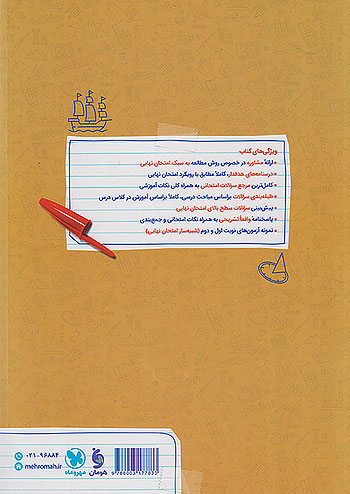 ویژگی‌های کتاب
• ارائهٔ مشاوره در خصوص روش مطالعه به سبک امتحان نهایی
• درسنامه‌های هدفدار، کاملاً مطابق با رویکرد امتحان نهایی
• کامل‌ترین مرجع سؤالات امتحانی به همراه کلی نکات آموزشی
• طبقه‌بندی سؤالات براساس مباحث درسی، کاملاً براساس آموزش در کلاس درس
• پیش‌بینی سؤالات سطح بالای امتحان نهایی
• پاسخنامهٔ واقعاً تشریحی به همراه نکات امتحانی و جمع‌بندی
• نمونه آزمون‌های نوبت اول و دوم (شبیه‌ساز امتحان نهایی)
۰۲۱-۹۶۸۸۴
mehromah.ir
مهروماه
هومان
9786003177055